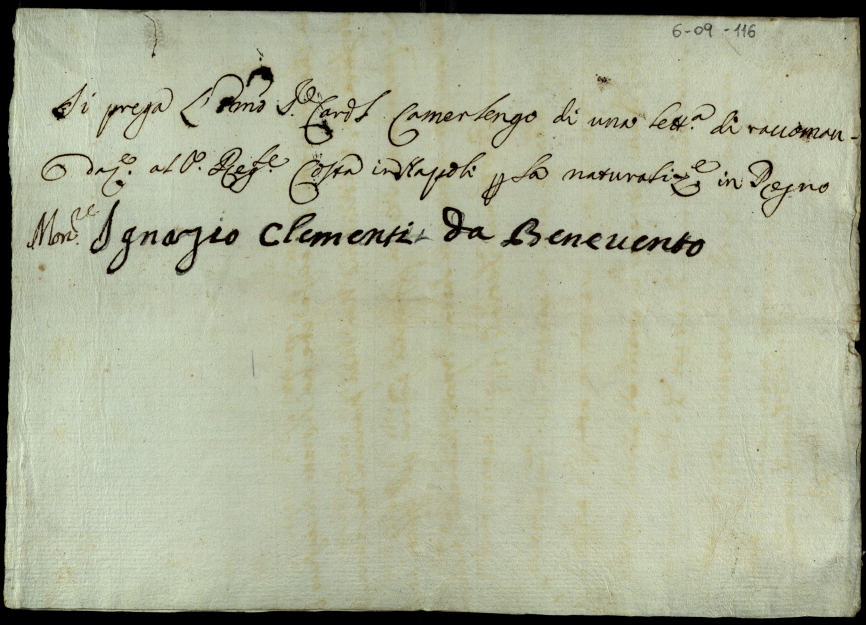 6-09-116
Si prega l'Emo Sr. Card.l Camerlengo di una lett.a di raccoman-
daz.e al P. Regg.e Costa in Napoli per la naturaliz.e in Regno
Mon.re Ignazio Clementi da Benevento